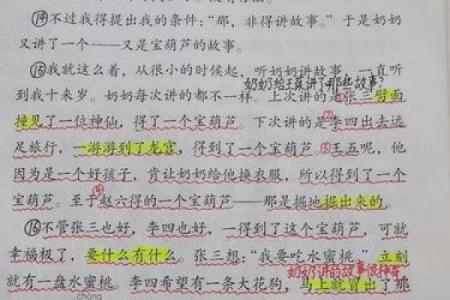 ⑭不过我得提出我的条件：“那，非得讲故事。”于是奶奶
又讲了一个——又是宝葫芦的故事。
⑮我就这么着，从很小的时候起，听奶奶讲故事，一直听
奶奶给王葆讲了那些故事？
到我十来岁。奶奶每次讲的都不一样。上次讲的是①张三劈面
撞见了一位神仙，得了一个宝葫芦。下次讲的是②李四出去远
足旅行，一游游到了龙宫，得到了一个宝葫芦。③王五呢，他
因为是一个好孩子，肯让奶奶给他换衣服，所以得到了一个
宝葫芦。④至于赵六得的一个宝葫芦——那是掘地掘出来的。
⑯不管张三也好，李四也好，一得到了这个宝葫芦，可就
幸福极了，要什么有什么。张三想：“我要吃水蜜桃。”立刻
奶奶讲的故事很神奇
就有一盘水蜜桃。李四希望有一条大花狗，马上就冒出了那
chóng